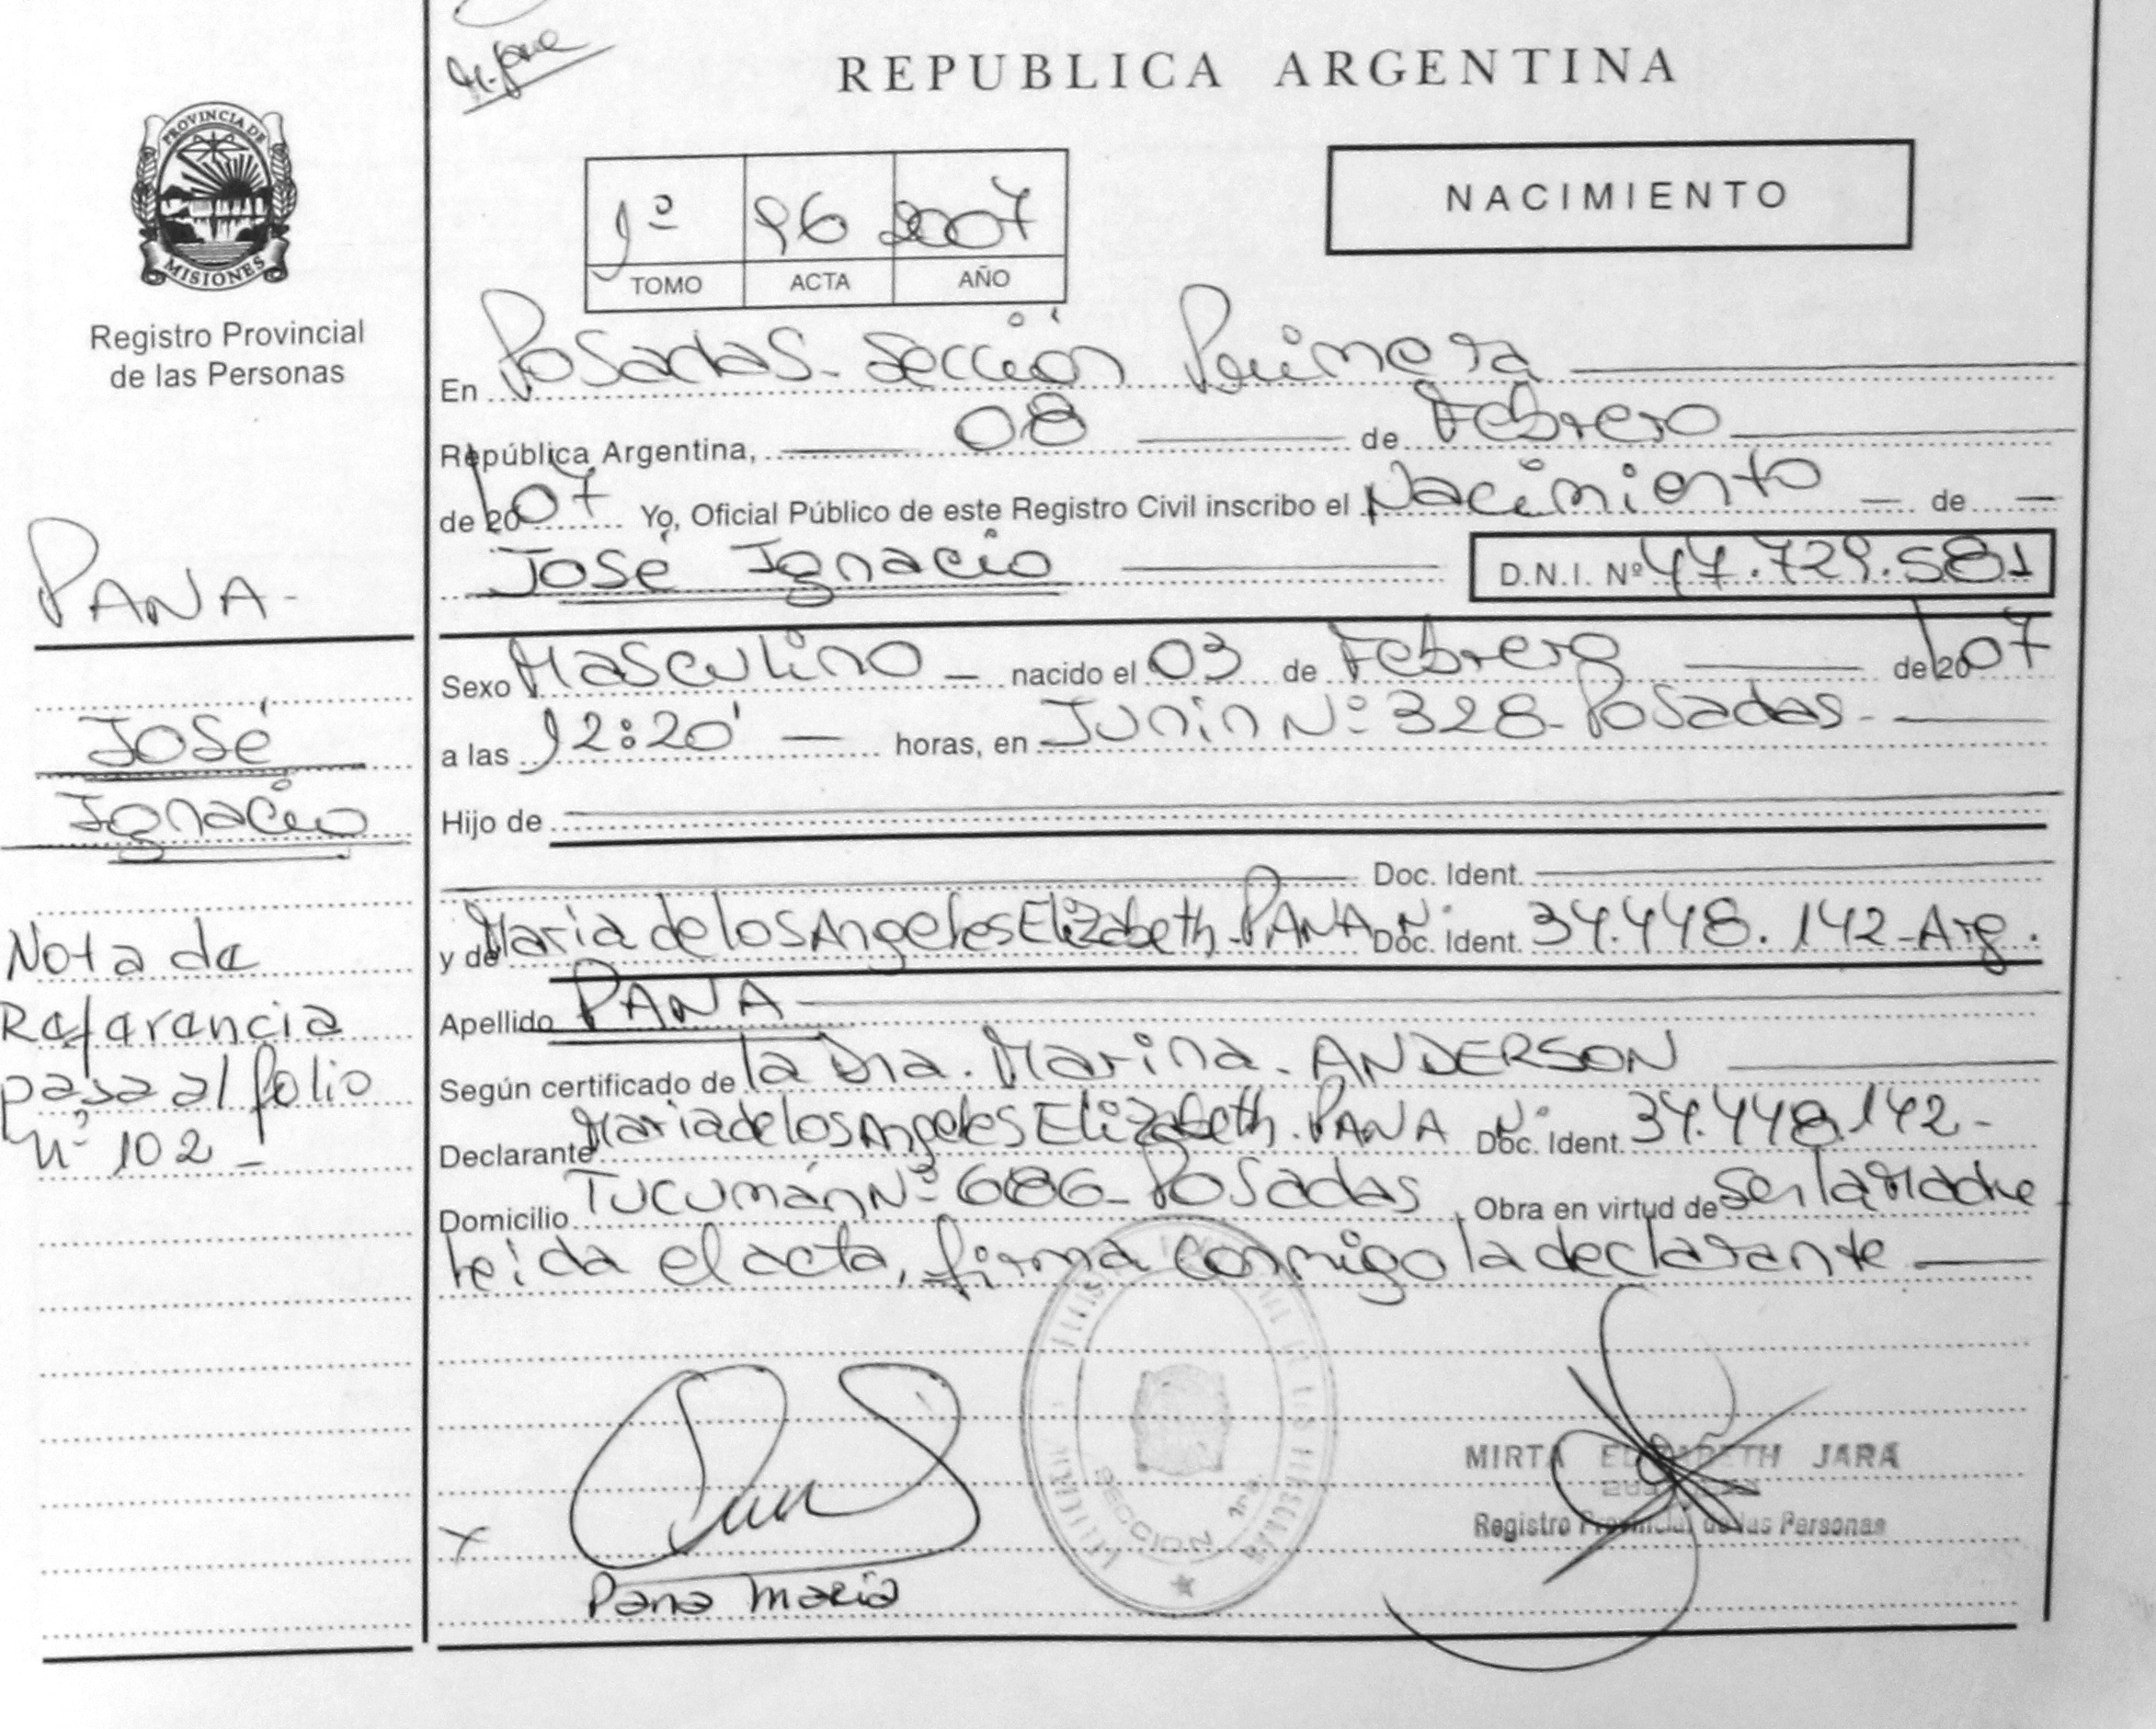 REPUBLICA ARGENTINA
PROVINCIA DE
MISIONES
Registro Provincial
de las Personas
NACIMIENTO
1º 96 2007
TOMO ACTA AÑO
En Posadas - Sección Primera
República Argentina, 08 de Febrero
de 2007 Yo, Oficial Público de este Registro Civil inscribo el Nacimiento — de —
José Ignacio D.N.I. Nº 47.729.581
Sexo Masculino — nacido el 03 de Febrero de 2007
a las 12:20' — horas, en Junin Nº 328 - Posadas -
Hijo de
Doc. Ident.
y de Maria de los Angeles Elizabeth - PANA Nº Doc. Ident. 34.448.142 - Arg.
Apellido PANA
Según certificado de la Dra. Marina - ANDERSON
Declarante Maria de los Angeles Elizabeth - PANA Nº Doc. Ident. 34.448.142 -
Domicilio Tucumán Nº 686 - Posadas Obra en virtud de ser la Madre -
Leida el acta, firma conmigo la declarante
PANA -
José
Ignacio
Nota de
Referencia
pasa al folio
nº 102 -
Pana Maria
SECCION 1ra.
MIRTA ELIZABETH JARA
Registro Provincial de las Personas